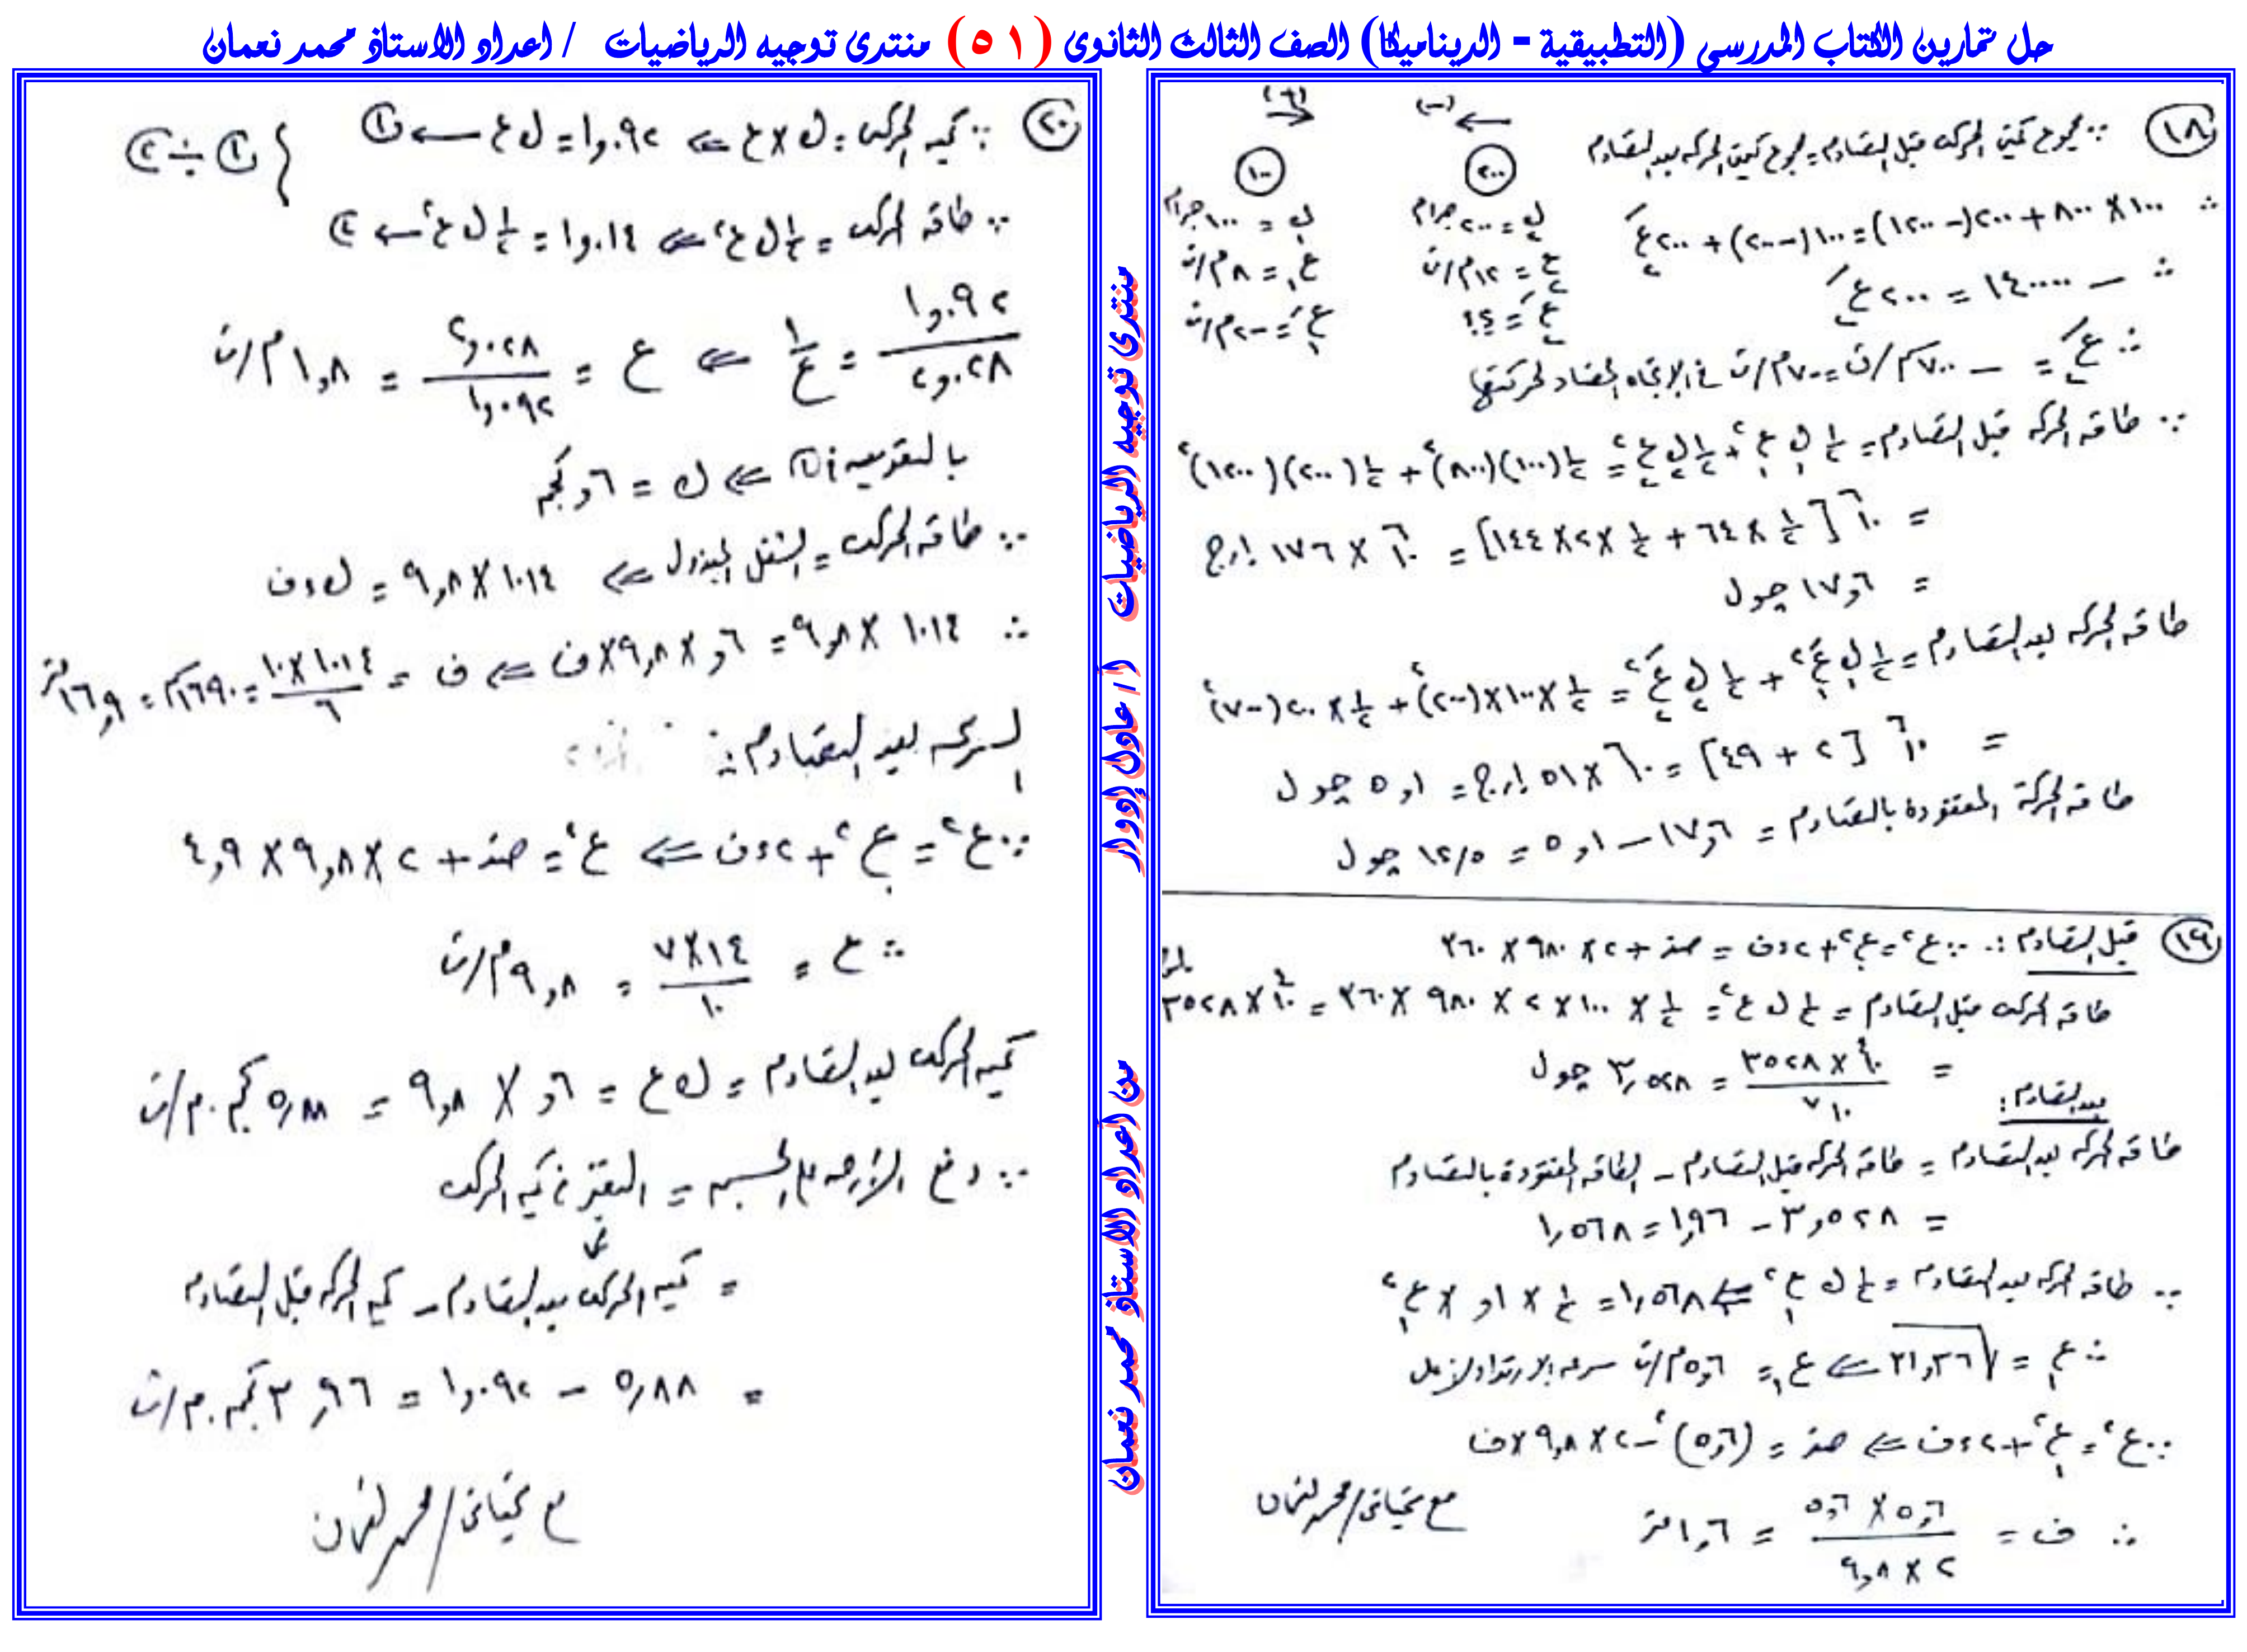 حل تمارين الكتاب المدرسي (التطبيقية - الديناميكا) الصف الثالث الثانوى (٥١) منتدى توجيه الرياضيات / اعداد الاستاذ محمد نعمان
(+) (-)
١٨ ∵ مجموع كميتى الحركه قبل التصادم = مجموع كميتى الحركه بعد التصادم
١٠٠ ٢٠٠
ك١ = ١٠٠ جرام ك٢ = ٢٠٠ جرام
ع١ = ٨ م/ث ع٢ = ١٢ م/ث
ع١َ = -٢ م/ث ع٢َ = ؟؟
∴ ١٠٠ × ٨٠٠ + ٢٠٠(-١٢٠٠) = ١٠٠(-٢٠٠) + ٢٠٠ع٢َ
∴ - ١٤٠٠٠٠ = ٢٠٠ع٢َ
∴ ع٢َ = - ٧٠٠سم/ث = -٧ م/ث فى الاتجاه المضاد لحركتها
∵ طاقه الحركه قبل التصادم = ½ ك١ ع١² + ½ ك٢ ع٢² = ½(١٠٠)(٨٠٠)² + ½(٢٠٠)(١٢٠٠)²
= ١٠⁶[½ × ٦٤ + ½ × ٢ × ١٤٤] = ١٠⁶ × ١٧٦ إرج
= ١٧,٦ جول
طاقه الحركه بعد التصادم = ½ ك١ ع١َ² + ½ ك٢ ع٢َ² = ½ × ١٠٠ × (٢٠٠)² + ½ × ٢٠(-٧٠٠)²
= ١٠⁶[٢ + ٤٩] = ١٠⁶ × ٥١ إرج = ٥,١ جول
طاقه الحركة المفقودة بالتصادم = ١٧,٦ - ٥,١ = ١٢,٥ جول
١٩ قبل التصادم: ∵ ع² = ع.² + ٢ءف = صفر + ٢ × ٩٨٠ × ٣٦٠
طاقه الحركه قبل التصادم = ½ ك ع² = ½ × ١٠٠ × ٢ × ٩٨٠ × ٣٦٠ = ١٠⁴ × ٣٥٢٨ إرج
= ١٠⁴ × ٣٥٢٨ / ١٠⁷ = ٣,٥٢٨ جول
بعد التصادم:
طاقه الحركه بعد التصادم = طاقه الحركه قبل التصادم - الطاقه المفقودة بالتصادم
= ٣,٥٢٨ - ١,٩٦ = ١,٥٦٨
∵ طاقه الحركه بعد التصادم = ½ ك ع١² ⇐ ١,٥٦٨ = ½ × ,١ × ع١²
∴ ع١ = √٣١,٣٦ ⇐ ع١ = ٥,٦ م/ث سرعه الارتداد لأعلى
∵ ع² = ع١² + ٢ءف ⇐ صفر = (٥,٦)² - ٢ × ٩,٨ × ف
∴ ف = ٥,٦ × ٥,٦ / ٢ × ٩,٨ = ١,٦ متر
مع تحياتى / محمد نعمان
منتدى توجيه الرياضيات
أ / عادل إدوار
من اعداد الاستاذ محمد نعمان
٢٠ ∵ كميه الحركه = ك × ع ⇐ ١,٠٩٢ = ك ع ← ١
∵ طاقه الحركه = ½ ك ع² ⇐ ١,٠١٤ = ½ ك ع² ← ٢ } ١ ÷ ٢
١,٠٩٢ / ٢,٠٢٨ = ١ / ع ⇐ ع = ٢,٠٢٨ / ١,٠٩٢ = ١,٨ م/ث
بالتعويض فى ١ ⇐ ك = ,٦ كجم
∵ طاقه الحركه = الشغل المبذول ⇐ ١٠١٤ × ٩,٨ = ك ء ف
∴ ١٠١٤ × ٩,٨ = ,٦ × ٩,٨ × ف ⇐ ف = ١٠١٤ × ١٠ / ٦ = ١٦٩٠سم = ١٦,٩ متر
السرعه بعد التصادم:
∵ ع² = ع.² + ٢ءف ⇐ ع² = صفر + ٢ × ٩,٨ × ٤,٩
∴ ع = ١٤ × ٧ / ١٠ = ٩,٨ م/ث
كميه الحركه بعد التصادم = ك ع = ,٦ × ٩,٨ = ٥,٨٨ كجم.م/ث
∵ دفع الأرض على الجسم = التغير فى كميه الحركه
= كميه الحركه بعد التصادم - كميه الحركه قبل التصادم
= ٥,٨٨ - ١,٠٩٢ = ٣,٩٦ كجم.م/ث
مع تحياتى / محمد نعمان